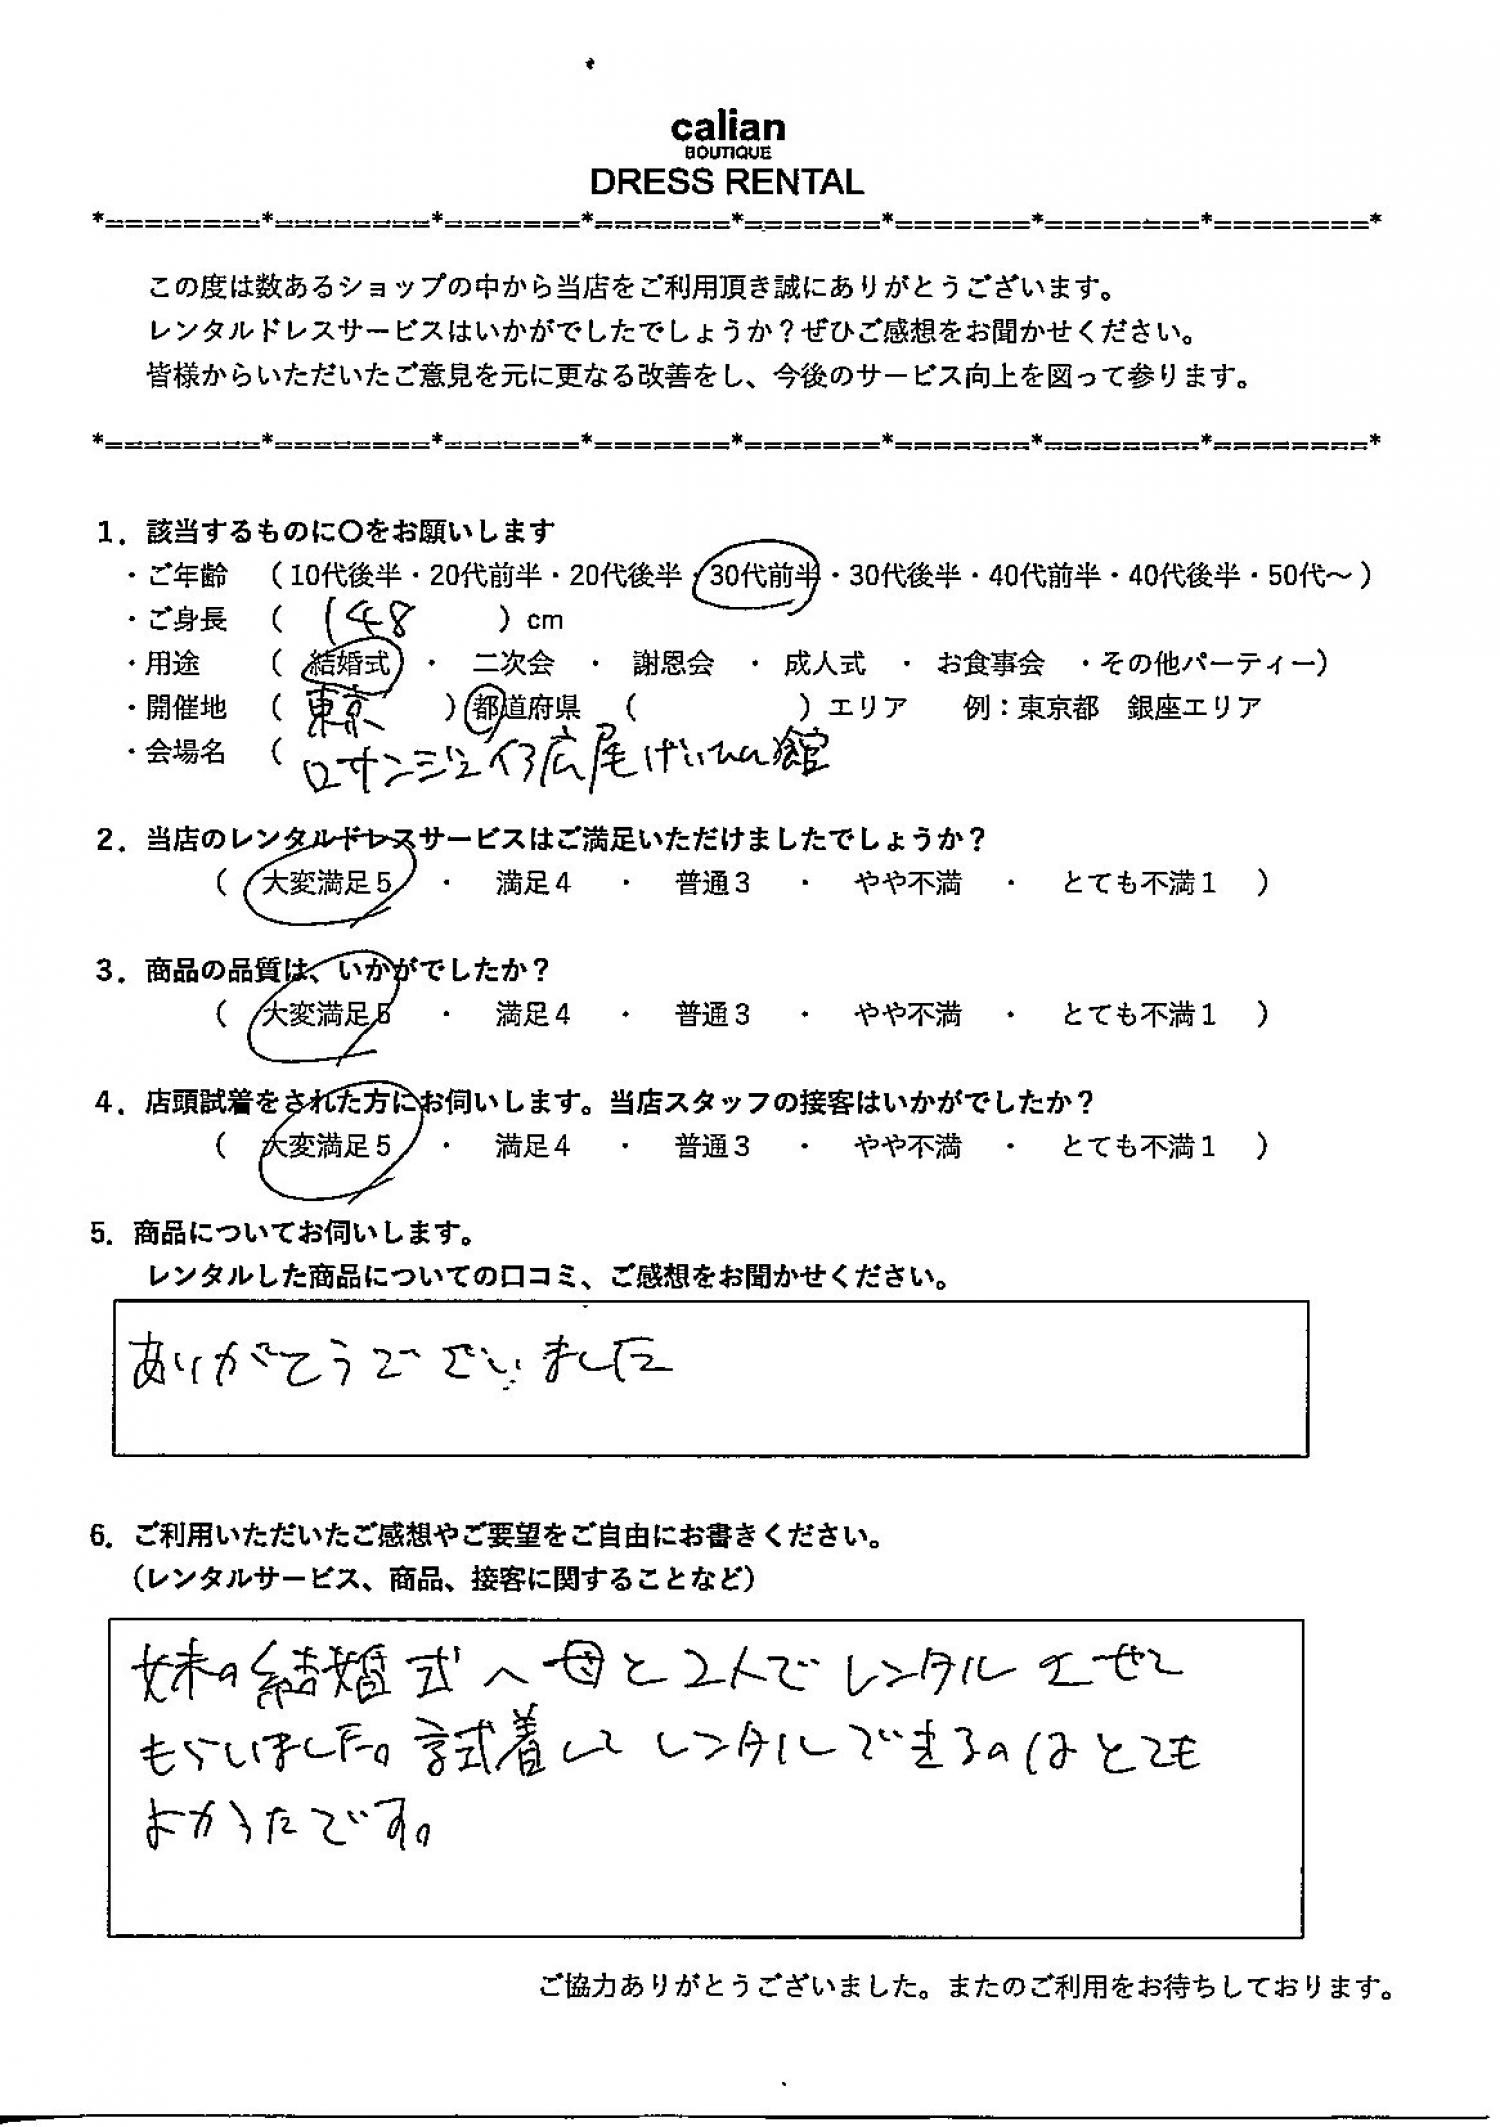 calian
BOUTIQUE
DRESS RENTAL
*========*========*=======*=======*=======*=======*========*========*
この度は数あるショップの中から当店をご利用頂き誠にありがとうございます。
レンタルドレスサービスはいかがでしたでしょうか？ぜひご感想をお聞かせください。
皆様からいただいたご意見を元に更なる改善をし、今後のサービス向上を図って参ります。
*========*========*=======*=======*=======*=======*========*========*
1．該当するものに〇をお願いします
・ご年齢 （10代後半・20代前半・20代後半・30代前半・30代後半・40代前半・40代後半・50代～）
・ご身長 （ 148 ）cm
・用途 （ 結婚式 ・ 二次会 ・ 謝恩会 ・ 成人式 ・ お食事会 ・その他パーティー）
・開催地 （ 東京 ）都道府県 （ ）エリア 例：東京都 銀座エリア
・会場名 （ ロサンジェイ广尾げいひん館
2．当店のレンタルドレスサービスはご満足いただけましたでしょうか？
（ 大変満足5 ・ 満足4 ・ 普通3 ・ やや不満 ・ とても不満1 ）
3．商品の品質は、いかがでしたか？
（ 大変満足5 ・ 満足4 ・ 普通3 ・ やや不満 ・ とても不満1 ）
4．店頭試着をされた方にお伺いします。当店スタッフの接客はいかがでしたか？
（ 大変満足5 ・ 満足4 ・ 普通3 ・ やや不満 ・ とても不満1 ）
5．商品についてお伺いします。
レンタルした商品についての口コミ、ご感想をお聞かせください。
ありがとうございました
6．ご利用いただいたご感想やご要望をご自由にお書きください。
（レンタルサービス、商品、接客に関することなど）
妹の結婚式へ母と2人でレンタルさせて
もらいました。試着してレンタルできるのはとても
よかったです。
ご協力ありがとうございました。またのご利用をお待ちしております。